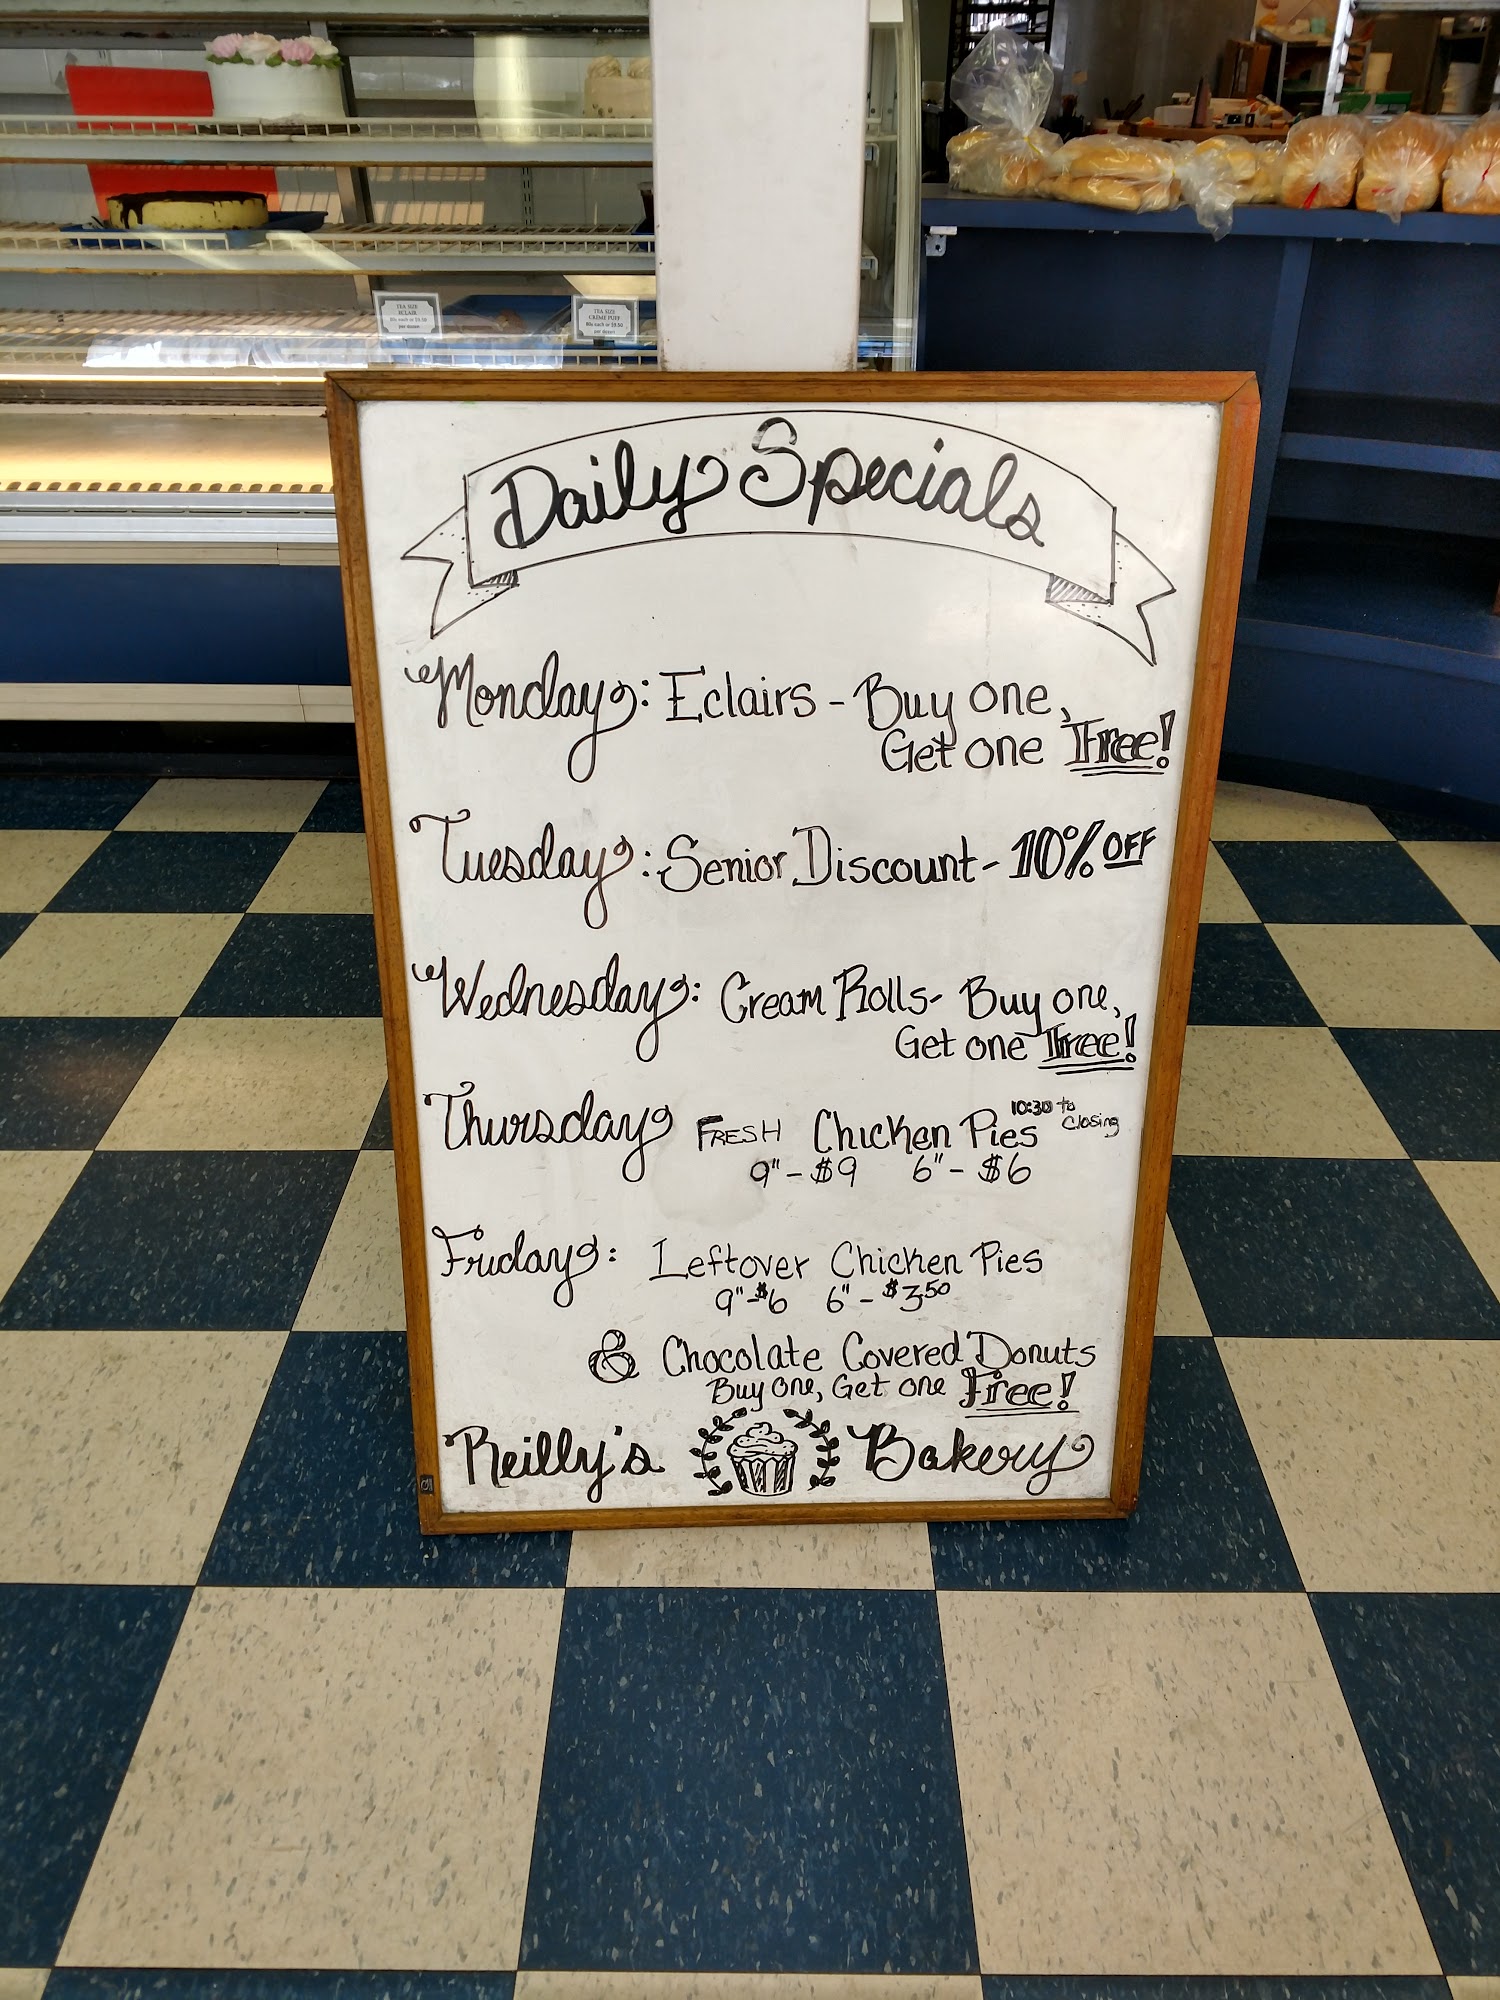 TEA SIZE
ECLAIR
TEA SIZE
CREME PUFF
Daily Specials
Monday: Eclairs - Buy one,
Get one Free!
Tuesday: Senior Discount - 10% OFF
Wednesday: Cream Rolls - Buy one,
Get one Free!
Thursday FRESH Chicken Pies 10:30 to Closing
9" - $9 6" - $6
Friday: Leftover Chicken Pies
9" - $6 6" - $3.50
& Chocolate Covered Donuts
Buy One, Get one Free!
Reilly's Bakery